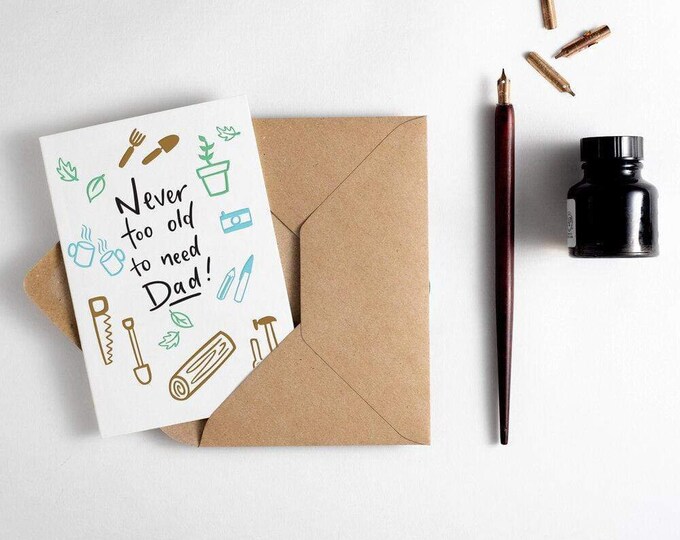 Never
too old
to need
Dad!